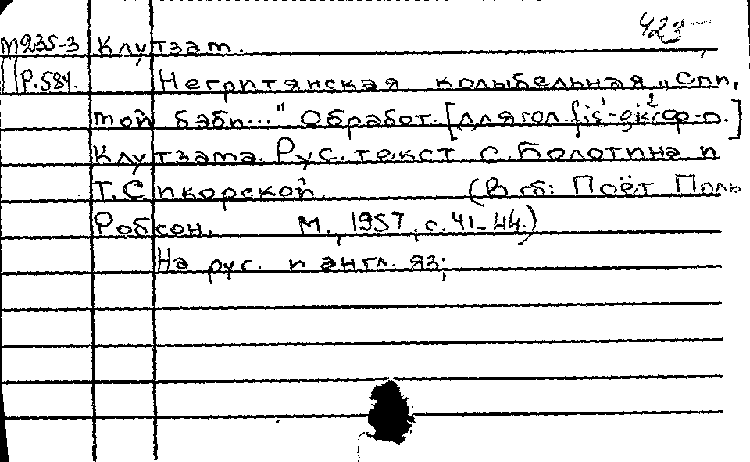 423
М235-3 Клутзам.
Р.584. Негритянская колыбельная „Спи,
мой бэби..." Обработ. [для гол. fis¹-gis² с ф-п.]
Клутзама. Рус. текст С. Болотина и
Т. Сикорской. (В сб: Поёт Поль
Робсон. М., 1957, с. 41-44.)
На рус. и англ. яз;